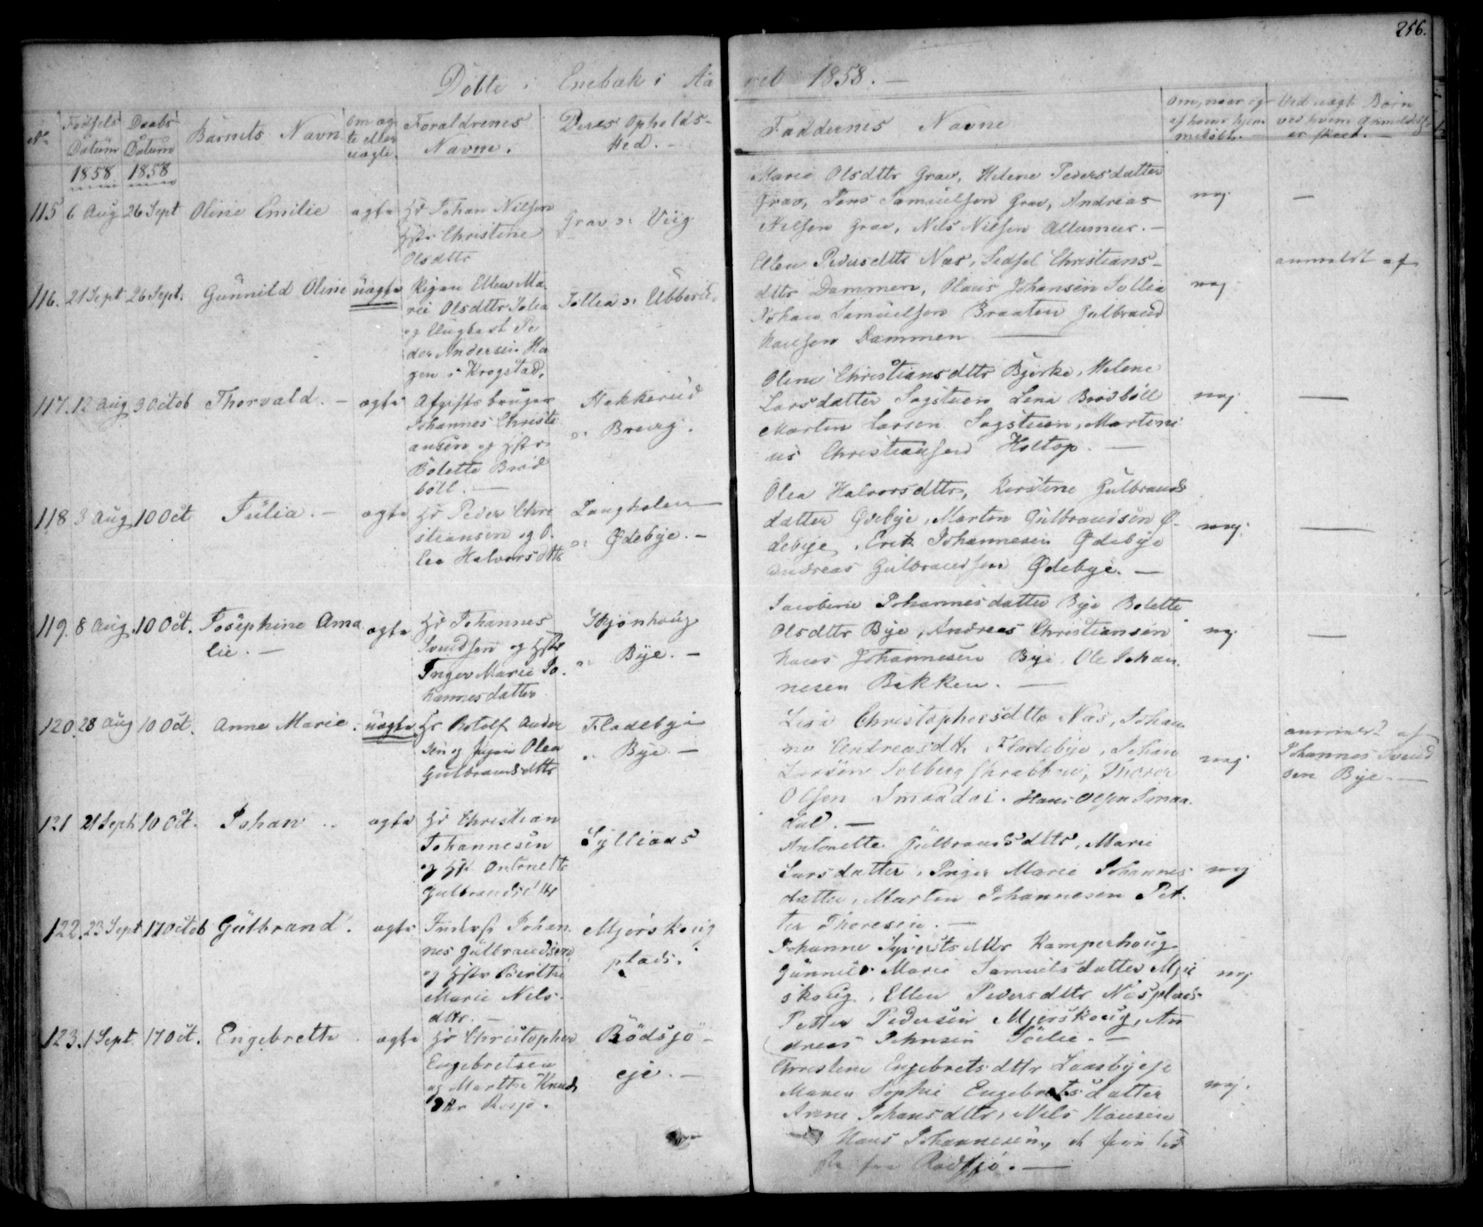 256.
Döbte i Enebak i Aa ret 1858. —
No
Födsels Datum 1858
Daabs Datum 1858
Barnets Navn
om ægte eller uægte.
Foraldrenes Navne.
Deres Opholds- sted. —
Faddernes Navne
om, naar
hjemmedöbt.
Ved uægte Börn
ved hvem
er skeet. —
115 6 Aug 26 Sept Oline Emilie ægte
Gr Johan Nilsen
Hstr Christine
Olsdttr
Grav u: Viig
Marie Olsdttr Grav, Helene Pedersdatter
Grav, Lars Samuelsen Grav, Andreas
Nilsen Grav, Nils Nilsen —
nej. —
116. 21 Sept 26 Sept. Gunnild Oline uægte
Pigen Ellen Ma
rie Olsdttr Tollia
og Ungkarl Pe
der Andersen Ha
gen i Krogstad.
Tollia u: Ubberud
Ellen Pedersdttr Næs, Sidsel Christians-
dttr Dammen, Olaus Johansen Tollia
Johan Samuelsen Braaten Gulbrand
Hansen Dammen —
nej
anmeldt af
117. 12 Aug 3 Octob Thorvald. — ægte
Afgiftsbruger
Johannes Christi
ansen og Hstr
Bolette Bröd
böll. —
Hekkerud
u: Bværg.
Oline Christiansdttr Bjerke, Helene
Larsdatter Sagstuen Lina Brödböll
Marten Larsen Sagstuen, Martini
us Christiansen Holtop. —
nej. —
118 3 Aug 10 Oct Julia. — ægte
Gr Peder Chri
stiansen og O-
lea Halvorsdttr
Langholen
u: Ödebye. —
Olea Halvorsdttr, Kirstine Gulbrands
datter Ödebye, Marten Gulbrandsen Ö-
debye, Erik Johannesen Ödebye
Andreas Gulbrandsen Ödebye. —
nej. —
119. 8 Aug. 10 Oct. Josephine Ama
lie. — ægte
Gr Johannes
Svendsen og Hstr
Inger Marie Jo-
hannesdatter
Skjönhoug
u: Bye. —
Jacobine Johannesdatter Bye Bolette
Olsdttr Bye, Andreas Christiansen
Hans Johannesen Bye, Ole Johan
nesen Bakken. —
nej. —
120. 28 Aug 10 Oct. Anne Marie. uægte
Gr Botolf Ander
sen og Pigen Olea
Gulbrandsdttr
Fladebye
u: Bye —
Lisa Christophersdttr Næs, Johan
ne Andreasdtt Fladebye, Johan
Larsen Solberg Thorer
Olsen Smaadal. Hans Olsen Smaa
dal. —
nej
anmeldt af
Johannes Svend
sen Bye. —
121 21 Sept 10 Oct. Johan .. ægte
Gr Christian
Johannesen
og Hstr Antonette
Gulbrandsdttr
Sylliaas
Antonette Gulbrandsdttr, Marie
Larsdatter, Inger Marie Johannes
datter, Marten Johannesen Pet-
ter Thoresen. —
nej
122. 23 Sept 17 Octob Gulbrand. ægte
Inderst Johan
nes Gulbrandsen
og Hstr Berthe
Marie Nils-
dttr. —
Mjerskoug
plads.
Johanne Syverts dttr Kamperhoug
Gunnild Marie Samuelsdatter Mjer
skoug, Ellen Pedersdttr Næsplads
Petter Pedersen Mjerskoug, An
dreas Johnsen Tölie. —
nej
123. 1 Sept. 17 Oct. Engebrette ægte
Gr Christopher
Engebretsen
og Marthe Knuds
dttr
Rödsjö-
eje. —
Christine Engebretsdttr Laasbyeje
Maren Sophie Engebretsdatter
Anne Johansdttr, Nils Hansen
Hans Johannesen,
fra Rödsjö. —
nej.